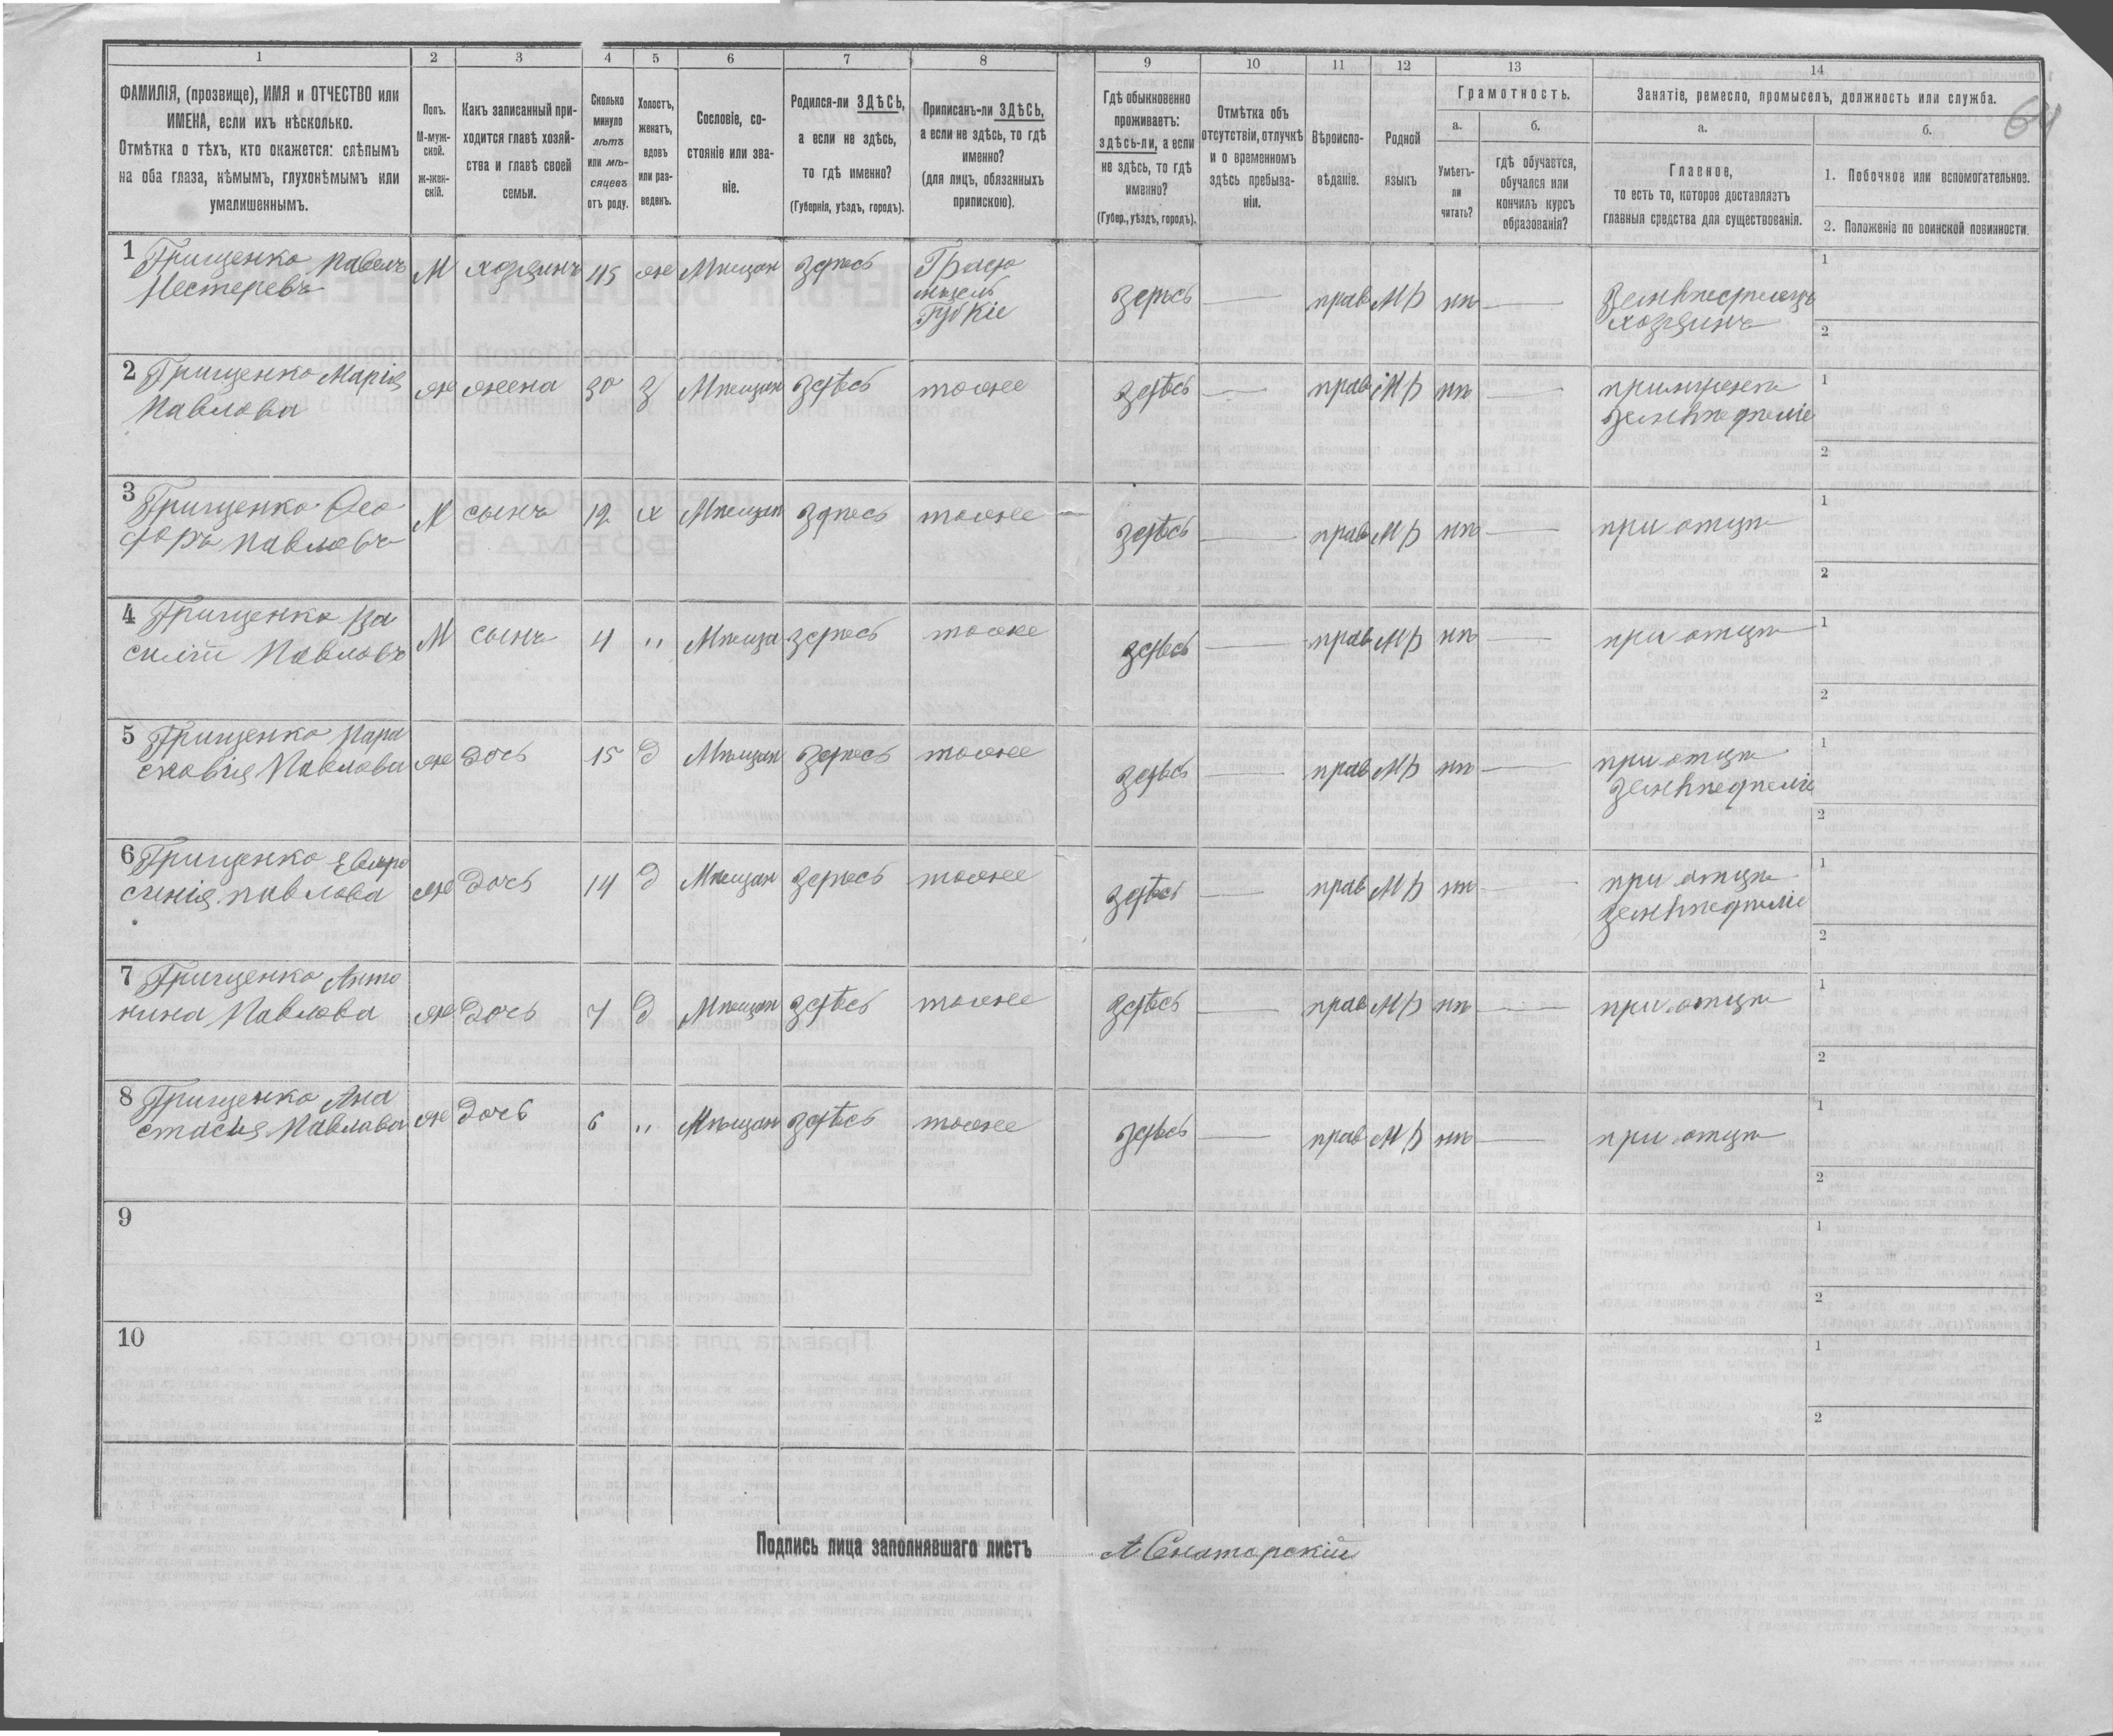 64
1 2 3 4 5 6 7 8 9 10 11 12 13 14
ФАМИЛІЯ, (прозвище), ИМЯ и ОТЧЕСТВО или
ИМЕНА, если ихъ нѣсколько.
Отмѣтка о тѣхъ, кто окажется: слѣпымъ
на оба глаза, нѣмымъ, глухонѣмымъ или
умалишеннымъ.
Полъ.
М-муж-
ской.
Ж-жен-
скій.
Какъ записанный при-
ходится главѣ хозяй-
ства и главѣ своей
семьи.
Сколько
минуло
лѣтъ
или мѣ-
сяцевъ
отъ роду.
Холостъ,
женатъ,
вдовъ
или раз-
веденъ.
Сословіе, со-
стояніе или зва-
ніе.
Родился-ли ЗДѢСЬ,
а если не здѣсь,
то гдѣ именно?
(Губернія, уѣздъ, городъ).
Приписанъ-ли ЗДѢСЬ,
а если не здѣсь, то гдѣ
именно?
(для лицъ, обязанныхъ
припискою).
Гдѣ обыкновенно
проживаетъ:
здѣсь-ли, а если
не здѣсь, то гдѣ
именно?
(Губер., уѣздъ, городъ).
Отмѣтка объ
отсутствіи, отлучкѣ
и о временномъ
здѣсь пребыва-
ніи.
Вѣроиспо-
вѣданіе.
Родной
языкъ
Грамотность.
а.
Умѣетъ-
ли
читать?
б.
гдѣ обучается,
обучался или
кончилъ курсъ
образованія?
Занятіе, ремесло, промыселъ, должность или служба.
а.
Главное,
то есть то, которое доставляэтъ
главныя средства для существованія.
б.
1. Побочное или вспомогательное.
2. Положеніе по воинской повинности.
1 Грищенко Павелъ М хозяинъ 45 ж Мѣщан здѣсь здѣсь — прав МР нѣ —
Нестеревъ хозяинъ
1
2
2 Грищенко Марія ж жена 30 з Мѣщан здѣсь тоже здѣсь — прав МР нѣ —
Павлова земледѣліе
1
2
3 Грищенко Ѳео М сынъ 12 х Мѣщан здѣсь тоже здѣсь — прав МР нѣ — при отцѣ
доръ Павловъ
1
2
4 Грищенко Ва М сынъ 4 " Мѣща здѣсь тоже здѣсь — прав МР нѣ — при отцѣ
силій Павловъ
1
2
5 Грищенко Пара ж дочь 15 д Мѣщан здѣсь тоже здѣсь — прав МР нѣ — при отцѣ
сковія Павлова земледѣліе
1
2
6 Грищенко Евфро ж дочь 14 д Мѣщан здѣсь тоже здѣсь — прав МР нѣ — при отцѣ
синія Павлова земледѣліе
1
2
7 Грищенко Анто ж дочь 7 д Мѣщан здѣсь тоже здѣсь — прав МР нѣ — при отцѣ
нина Павлова
1
2
8 Грищенко Ана ж дочь 6 " Мѣщан здѣсь тоже здѣсь — прав МР нѣ — при отцѣ
стасія Павлова
1
2
9
1
2
10
1
2
Подпись лица заполнявшаго листъ А Сенаторскій